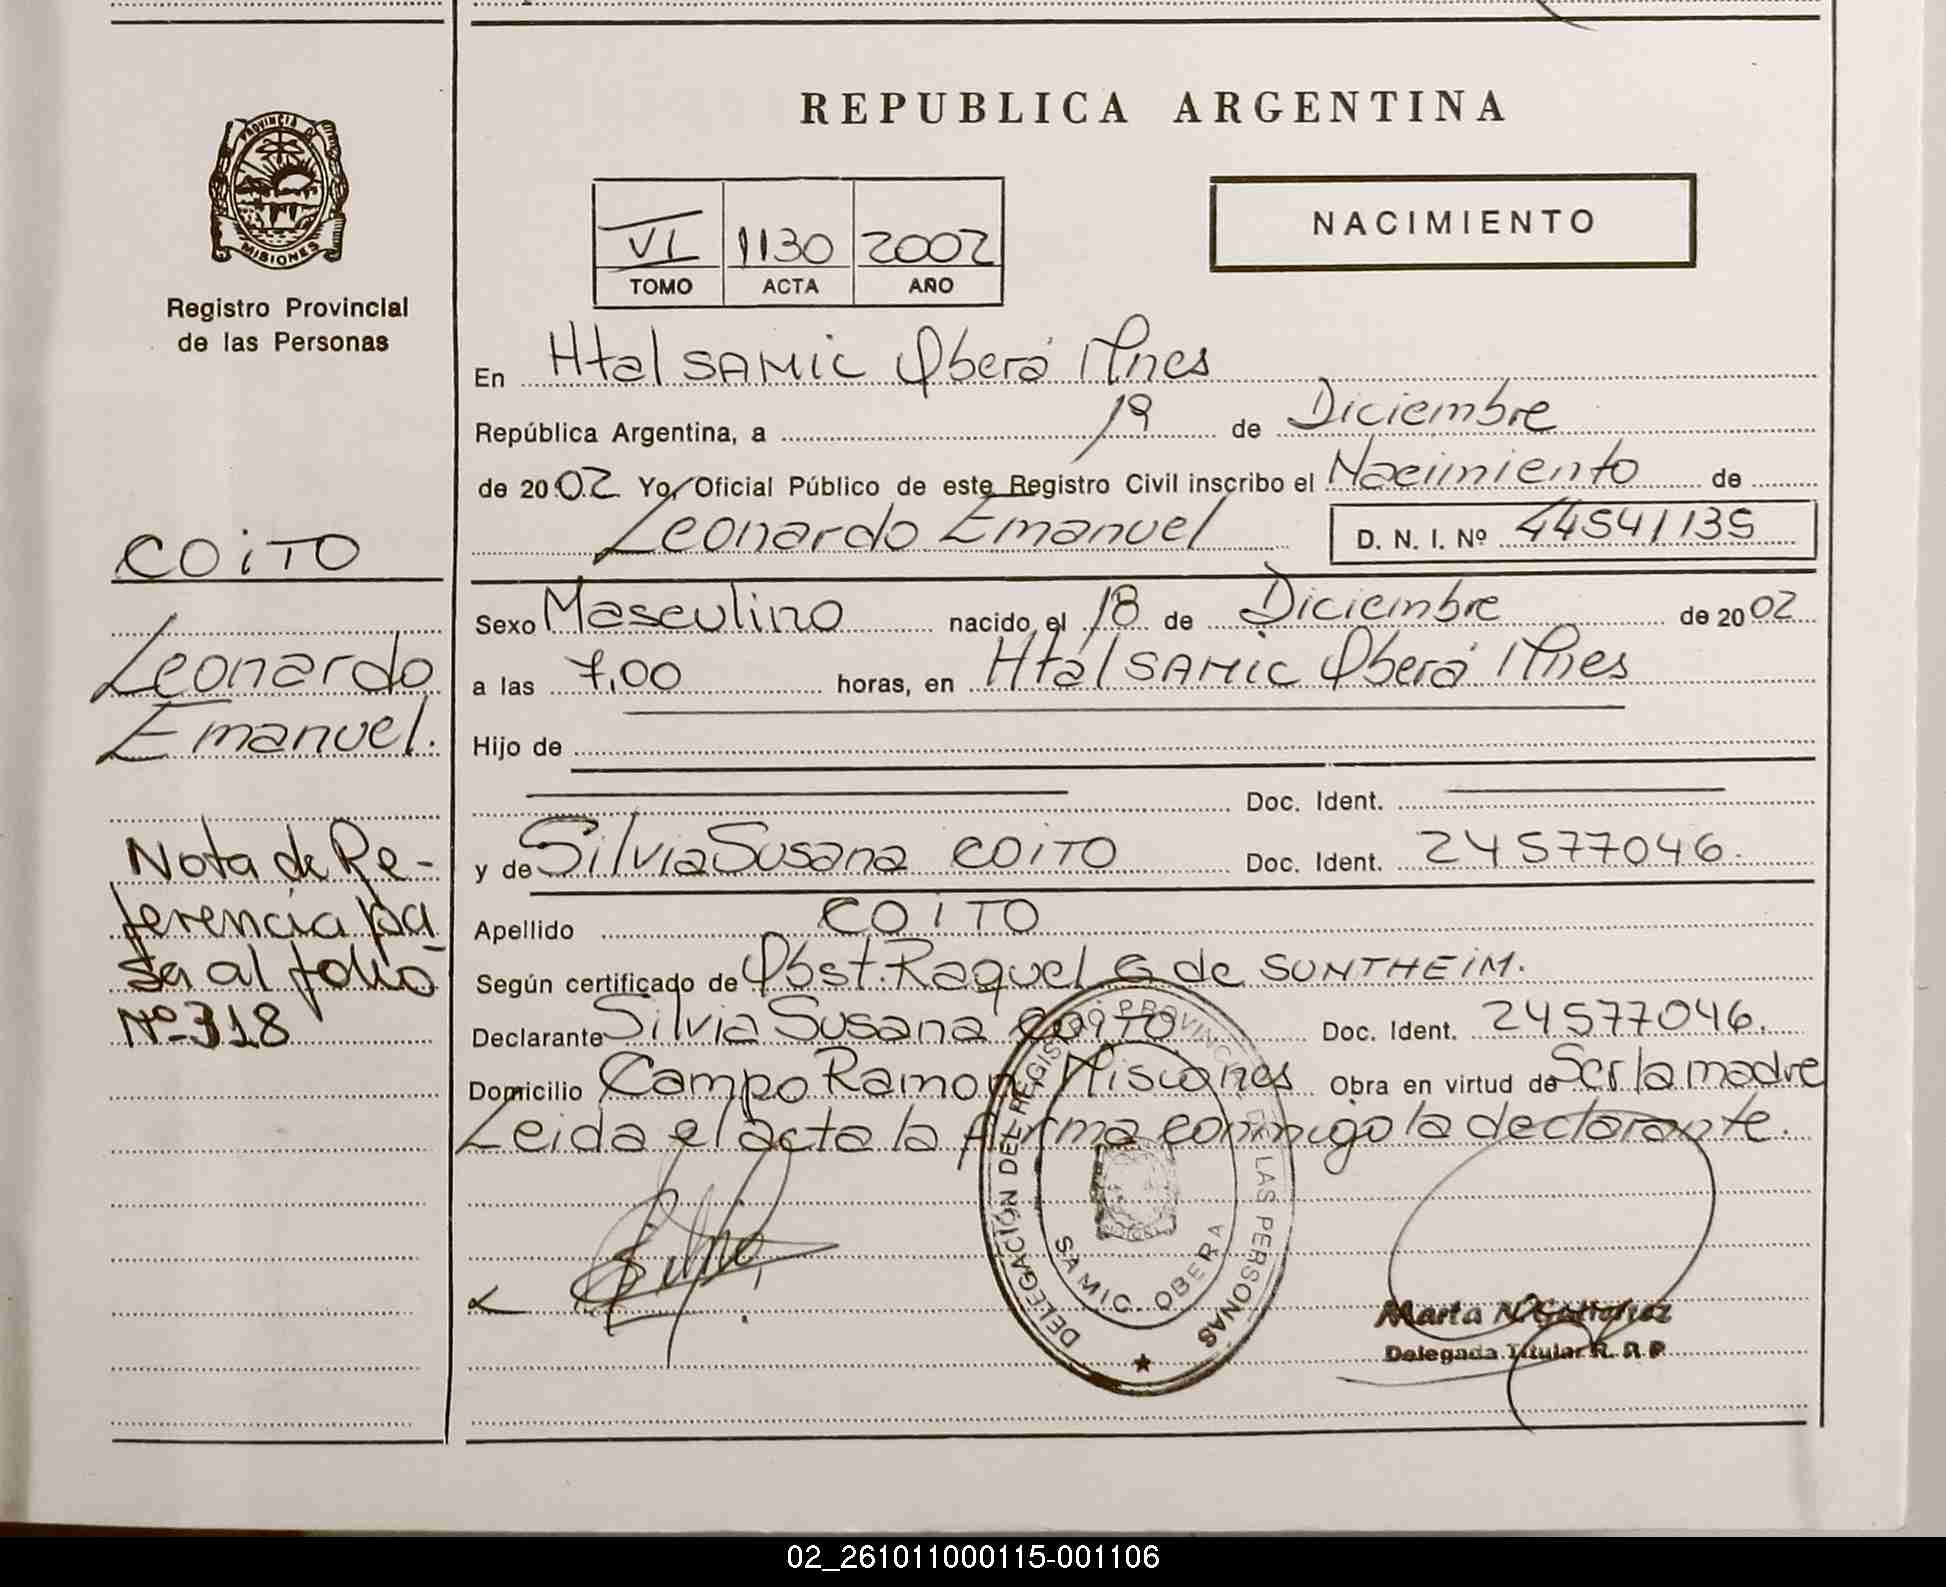 REPUBLICA ARGENTINA
PROVINCIA DE
MISIONES
Registro Provincial
de las Personas
VI 1130 2002
TOMO ACTA AÑO
NACIMIENTO
En Htal SAMIC Oberá Mnes
República Argentina, a 19 de Diciembre
de 2002 Yo, Oficial Público de este Registro Civil inscribo el Nacimiento de
Leonardo Emanuel D. N. I. Nº 44541135
Sexo Masculino nacido el 18 de Diciembre de 2002
a las 7,00 horas, en Htal SAMIC Oberá Mnes
Hijo de
Doc. Ident.
y de Silvia Susana COITO Doc. Ident. 24577046.
Apellido COITO
Según certificado de Obst. Raquel G de SUNTHEIM.
Declarante Silvia Susana COITO Doc. Ident. 24577046.
Domicilio Campo Ramon, Misiones Obra en virtud de Ser la madre
Leida el acta la firma conmigo la declarante.
COITO
Leonardo
Emanuel.
Nota de Re-
ferencia pa
sa al folio
Nº 318
DELEGACIÓN DEL REGISTRO PROVINCIAL DE LAS PERSONAS
SAMIC. OBERA
Marta N.
Delegada Titular R. P. P.
02_261011000115-001106